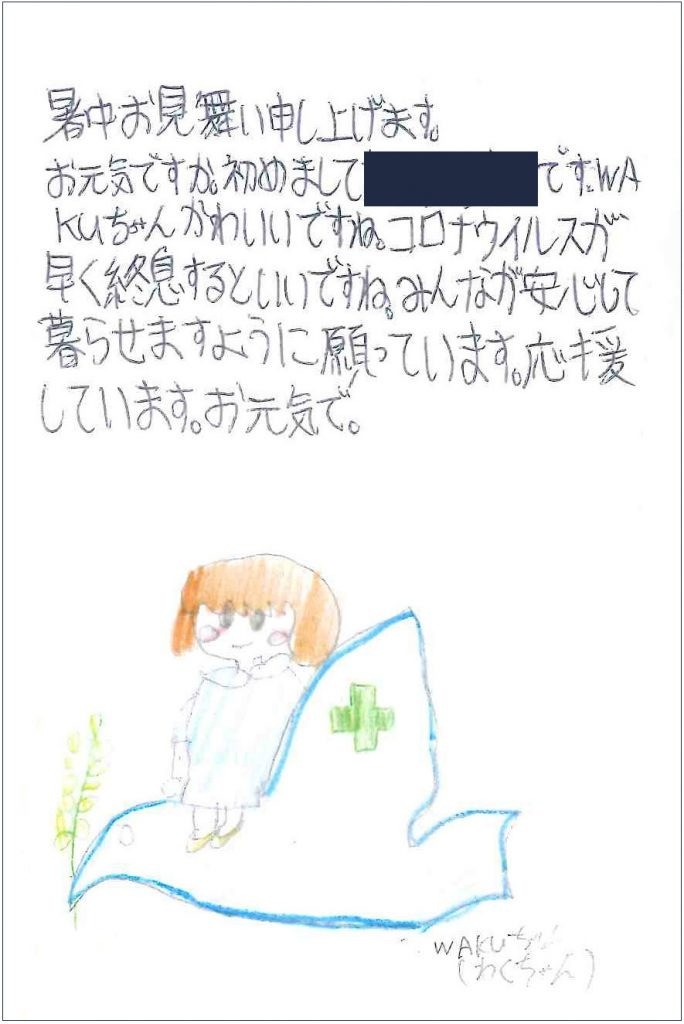 暑中お見舞い申し上げます。
お元気ですか。初めまして です。WA
KUちゃんかわいいですね。コロナウイルスが
早く終息するといいですね。みんなが安心して
暮らせますように願っています。応援
しています。お元気で。
WAKUちゃん
(わくちゃん)